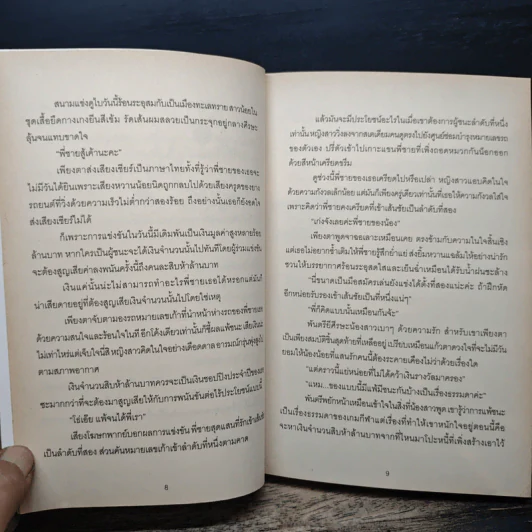 สนามแข่งดูไบวันนี้ร้อนระอุสมกับเป็นเมืองทะเลทราย สาวน้อยใน
ชุดเสื้อยืดกางเกงยีนสีเข้ม รัดเส้นผมสลวยเป็นกระจุกอยู่กลางศีรษะ
ลุ้นจนแทบขาดใจ
"พี่ชายสู้เค้านะคะ"
เพียงตาส่งเสียงเชียร์เป็นภาษาไทยทั้งที่รู้ว่าพี่ชายของเธอจะ
ไม่มีวันได้ยินเพราะเสียงหวานน้อยนิดถูกกลบไปด้วยเสียงครูดของยาง
รถยนต์ที่วิ่งด้วยความเร็วไม่ต่ำกว่าสองร้อย ถึงอย่างนั้นเธอก็ยังอดใจ
ส่งเสียงเชียร์ไม่ได้
ก็เพราะการแข่งขันในวันนี้มีเดิมพันเป็นเงินมูลค่าสูงหลายร้อย
ล้านบาท หากใครเป็นผู้ชนะจะได้เงินจำนวนนั้นไปทันทีโดยผู้ร่วมแข่งขัน
จะต้องสูญเสียค่าลงพนันครั้งนี้ถึงคนละสิบห้าล้านบาท
เงินแค่นั้นน่ะไม่สามารถทำอะไรพี่ชายเธอได้หรอกแต่มันก็
น่าเสียดายอยู่ที่ต้องสูญเสียเงินจำนวนนั้นไปโดยใช่เหตุ
เพียงตาจับตามองรถหมายเลขเก้าที่นำหน้าห่างรถของพี่ชายเธอ
ด้วยความสนใจและร้อนใจในที อีกโค้งเดียวเท่านั้นก็ชี้ผลแพ้ชนะ เสียเงินน่ะ
ไม่เท่าไหร่แต่เจ็บใจนี่สิ หญิงสาวคิดในใจอย่างเดือดดาล อารมณ์กรุ่นพุ่งสูงไป
ตามสภาพอากาศ
เงินจำนวนสิบห้าล้านบาทควรจะเป็นเงินชอปปิงประจำปีของเธอ
ซะมากกว่าที่จะต้องมาสูญเสียให้กับการพนันขันต่อไร้ประโยชน์แบบนี้
"โธ่เอ๊ย แพ้จนได้พี่เรา"
เสียงโฆษกพากย์บอกผลการแข่งขัน พี่ชายสุดแสนที่รักเข้าเส้นชัย
เป็นลำดับที่สอง ส่วนคันหมายเลขเก้าเข้าลำดับที่หนึ่งตามคาด
8
แล้วมันจะมีประโยชน์อะไรในเมื่อเขาต้องการผู้ชนะลำดับที่หนึ่ง
เท่านั้น หญิงสาววิ่งลงจากสเตเดียมคนดูตรงไปยังศูนย์ซ่อมบำรุงหมายเลขรถ
ของตัวเอง ปรี่ตัวเข้าไปเกาะแขนพี่ชายที่เพิ่งถอดหมวกกันน็อกออก
ด้วยสีหน้าเครียดขรึม
ดูซิวันนี้พี่ชายของเธอเครียดไปหรือเปล่า หญิงสาวแอบคิดในใจ
ด้วยความกังวลเล็กน้อย แต่มันก็เพียงครู่เดียวเท่านั้นที่เธอให้ความกังวลใส่ใจ
เพราะคิดว่าพี่ชายคงเครียดที่เข้าเส้นชัยเป็นลำดับที่สอง
"เก่งจังเลยค่ะพี่ชายของน้อง"
เพียงตาพูดจาฉอเลาะเหมือนเคย ตรงข้ามกับความในใจสิ้นเชิง
แต่เธอไม่อยากซ้ำเติมให้พี่ชายรู้สึกย่ำแย่ ส่งยิ้มหวานฉ่ำแฉล้มให้อย่างน่ารัก
ชวนให้บรรยากาศร้อนระอุสดใสและเย็นฉ่ำเหมือนได้รับน้ำฝนชะล้าง
"นี่ขนาดเป็นมือสมัครเล่นยังแข่งได้ตั้งที่สองแน่ะค่ะ ถ้าฝึกหัด
อีกหน่อยรับรองเข้าเส้นชัยเป็นที่หนึ่งแน่ๆ"
"พี่ก็คิดแบบนั้นเหมือนกันจ้ะ"
พันตรีขยี้ศีรษะน้องสาวเบาๆ ด้วยความรัก สำหรับเขาเพียงตา
เป็นเพียงสมบัติชิ้นสุดท้ายที่เหลืออยู่ เปรียบเหมือนแก้วตาดวงใจที่จะไม่มีวัน
ยอมให้น้องน้อยที่แสนรักคนนี้ต้องระคายเคืองไม่ว่าด้วยเรื่องใด
"แต่คราวนี้แย่หน่อยที่ไม่ได้คว้าเงินรางวัลมาครอง"
"แหม...ของแบบนี้มีแพ้มีชนะกันบ้างเป็นเรื่องธรรมดาค่ะ"
พันตรีพยักหน้าเหมือนเข้าใจในสิ่งที่น้องสาวพูด เขารู้ว่าการแพ้ชนะ
เป็นเรื่องธรรมดาของเกมกีฬาแต่เรื่องที่ทำให้เขาหนักใจอยู่ตอนนี้คือ
จะหาเงินจำนวนสิบห้าล้านบาทจากที่ไหนมาโปะหนี้ที่เพิ่งสร้างเอาไว้
9